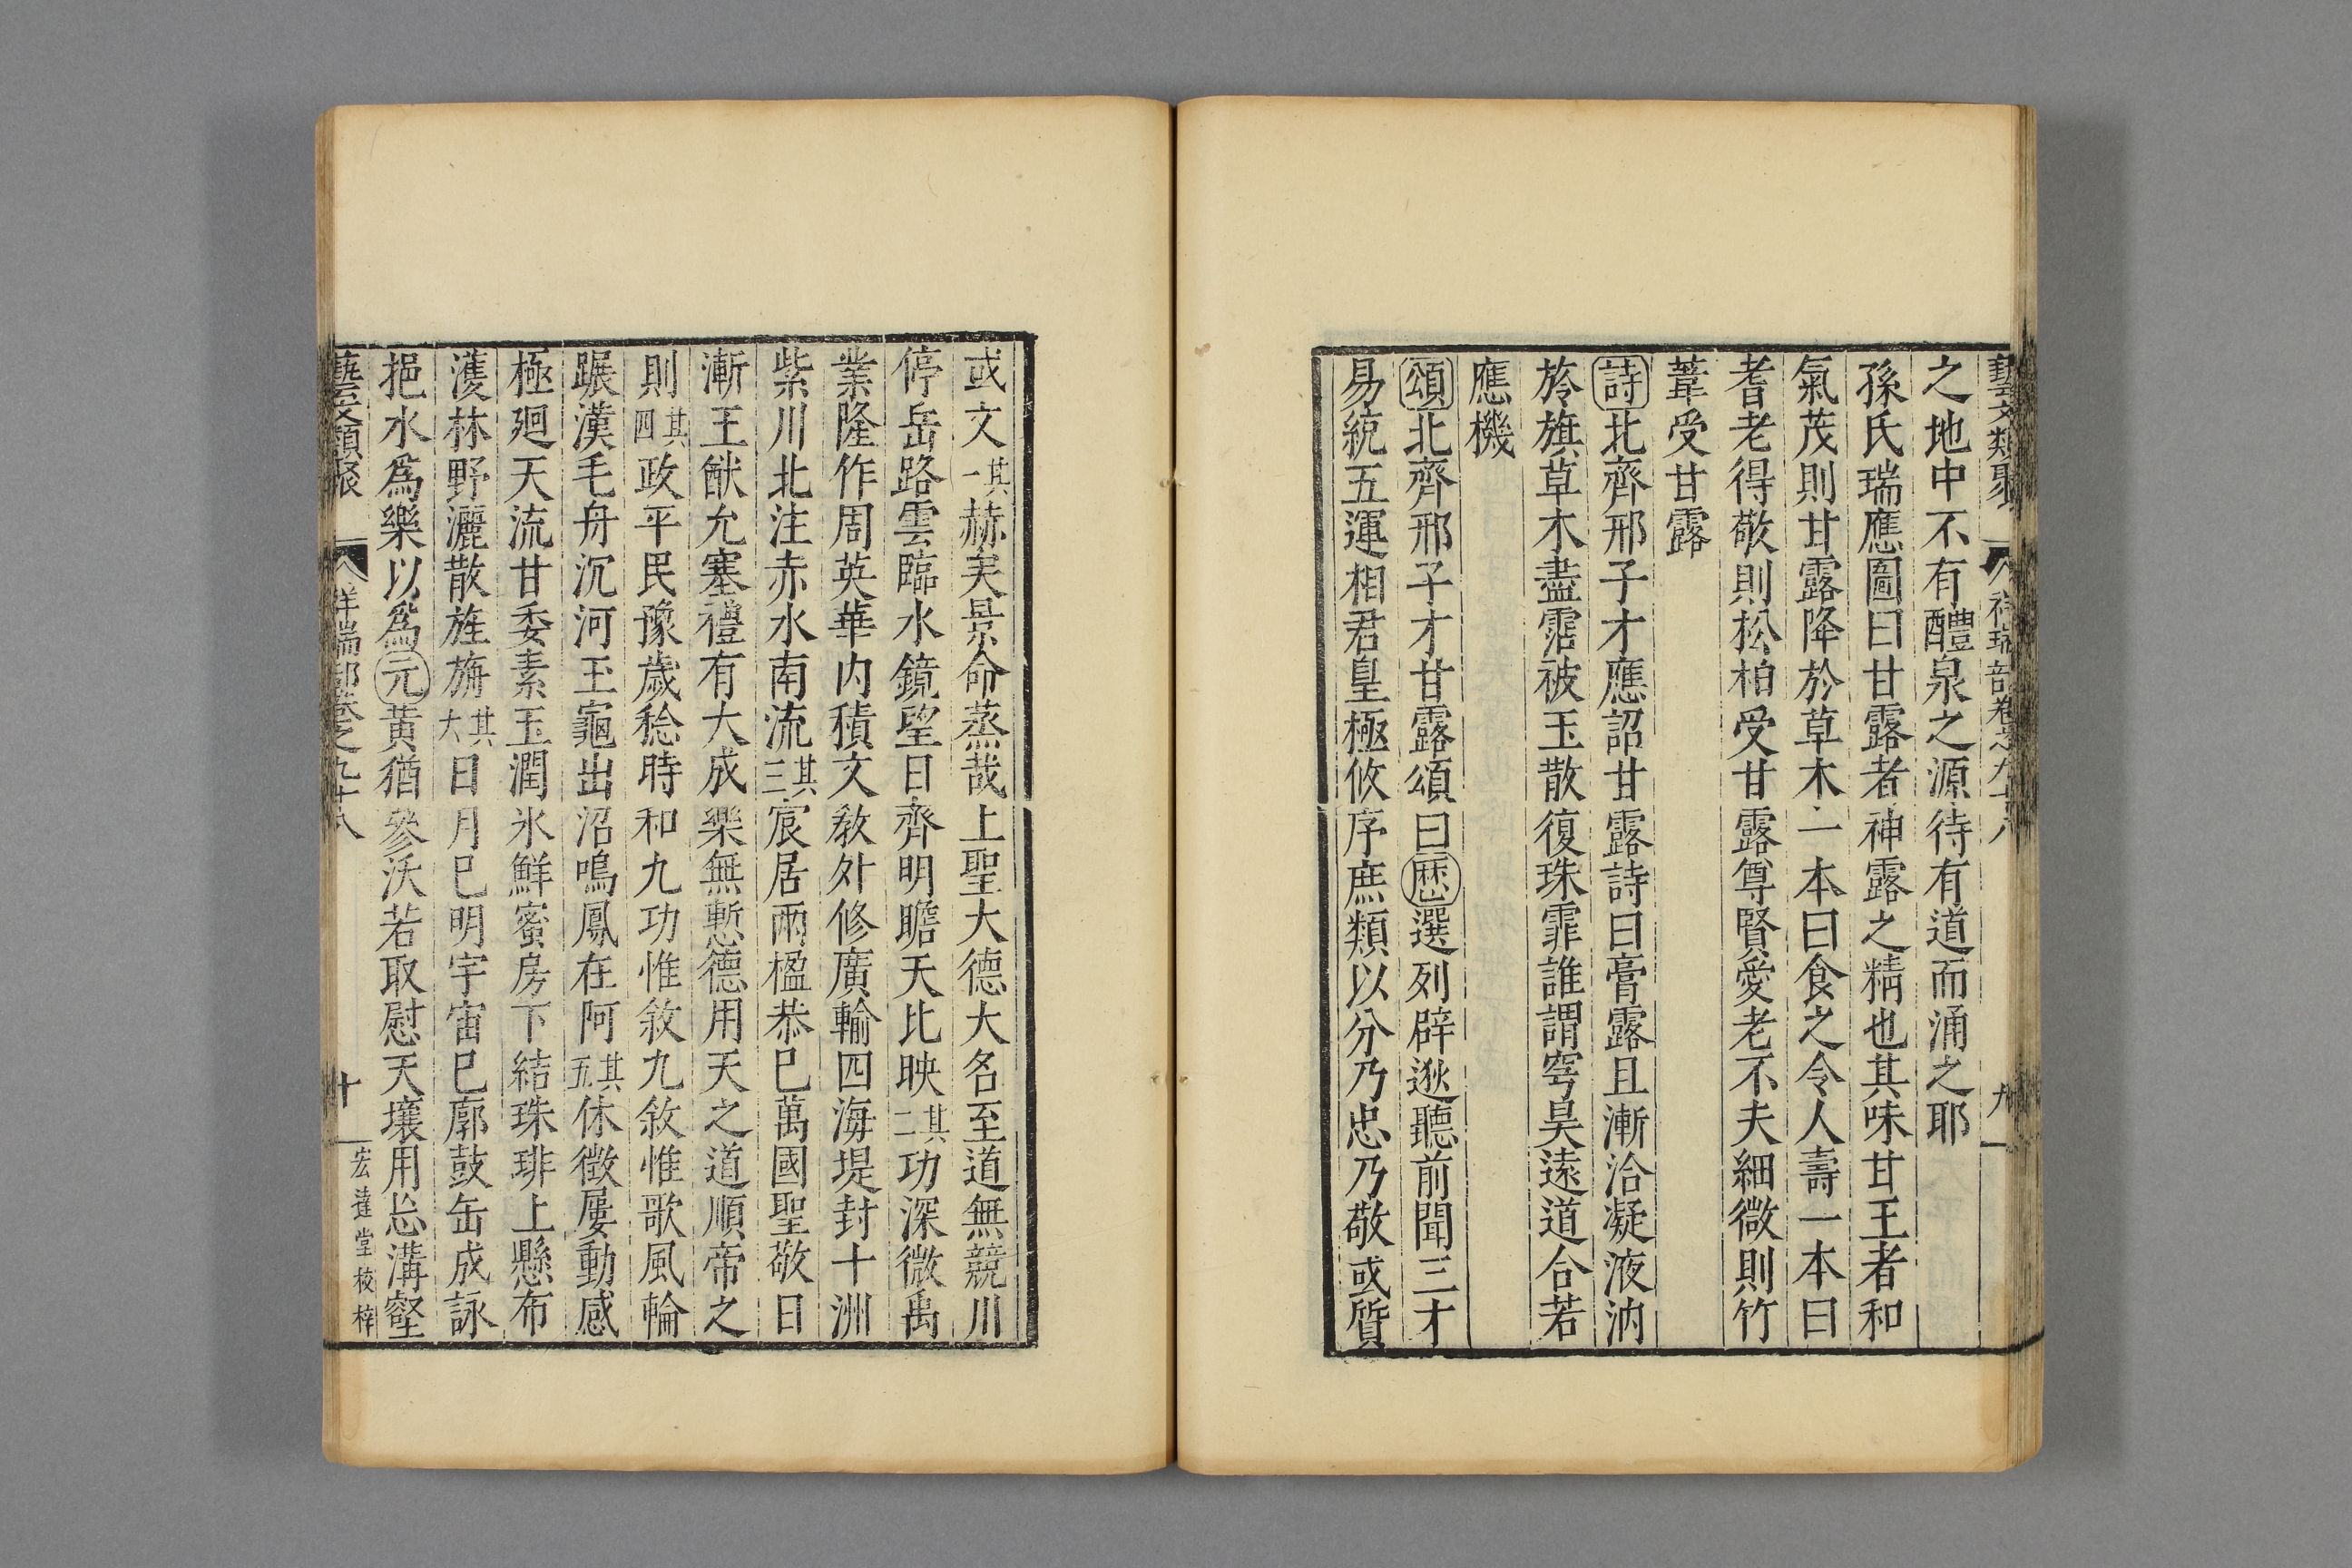 藝文類聚 祥瑞部卷之九十八 九
之地中不有醴泉之源待有道而涌之耶
孫氏瑞應圖曰甘露者神露之精也其味甘王者和
氣茂則甘露降於草木一本曰食之令人壽一本曰
耆老得敬則松柏受甘露尊賢愛老不失細微則竹
葦受甘露
詩北齊邢子才應詔甘露詩曰膏露且漸洽凝液汭
旍旗草木盡霑被玉散復珠霏誰謂穹昊遠道合若
應機
頌北齊邢子才甘露頌曰歷選列辟逖聽前聞三才
易統五運相君皇極攸序庶類以分乃忠乃敬或質
或文其一赫矣景命蒸哉上聖大德大名至道無競川
停岳路雲臨水鏡望日齊明瞻天比映其二功深微禹
業隆作周英華内積文敎外修廣輸四海堤封十洲
紫川北注赤水南流其三宸居兩楹恭巳萬國聖敬日
漸王猷允塞禮有大成樂無慙德用天之道順帝之
則其四政平民豫歲稔時和九功惟敘九敘惟歌風輪
蹍漢毛舟沉河玉龜出沼鳴鳳在阿其五休徵屢動感
極廻天流甘委素玉潤氷鮮蜜房下結珠琲上懸布
濩林野灑散旌旃其六日月巳明宇宙巳廓鼓缶成詠
挹水爲樂以爲元黃猶參沃若取慰天壤用忘溝壑
藝文類聚 祥瑞部卷之九十八 十 宏達堂校梓